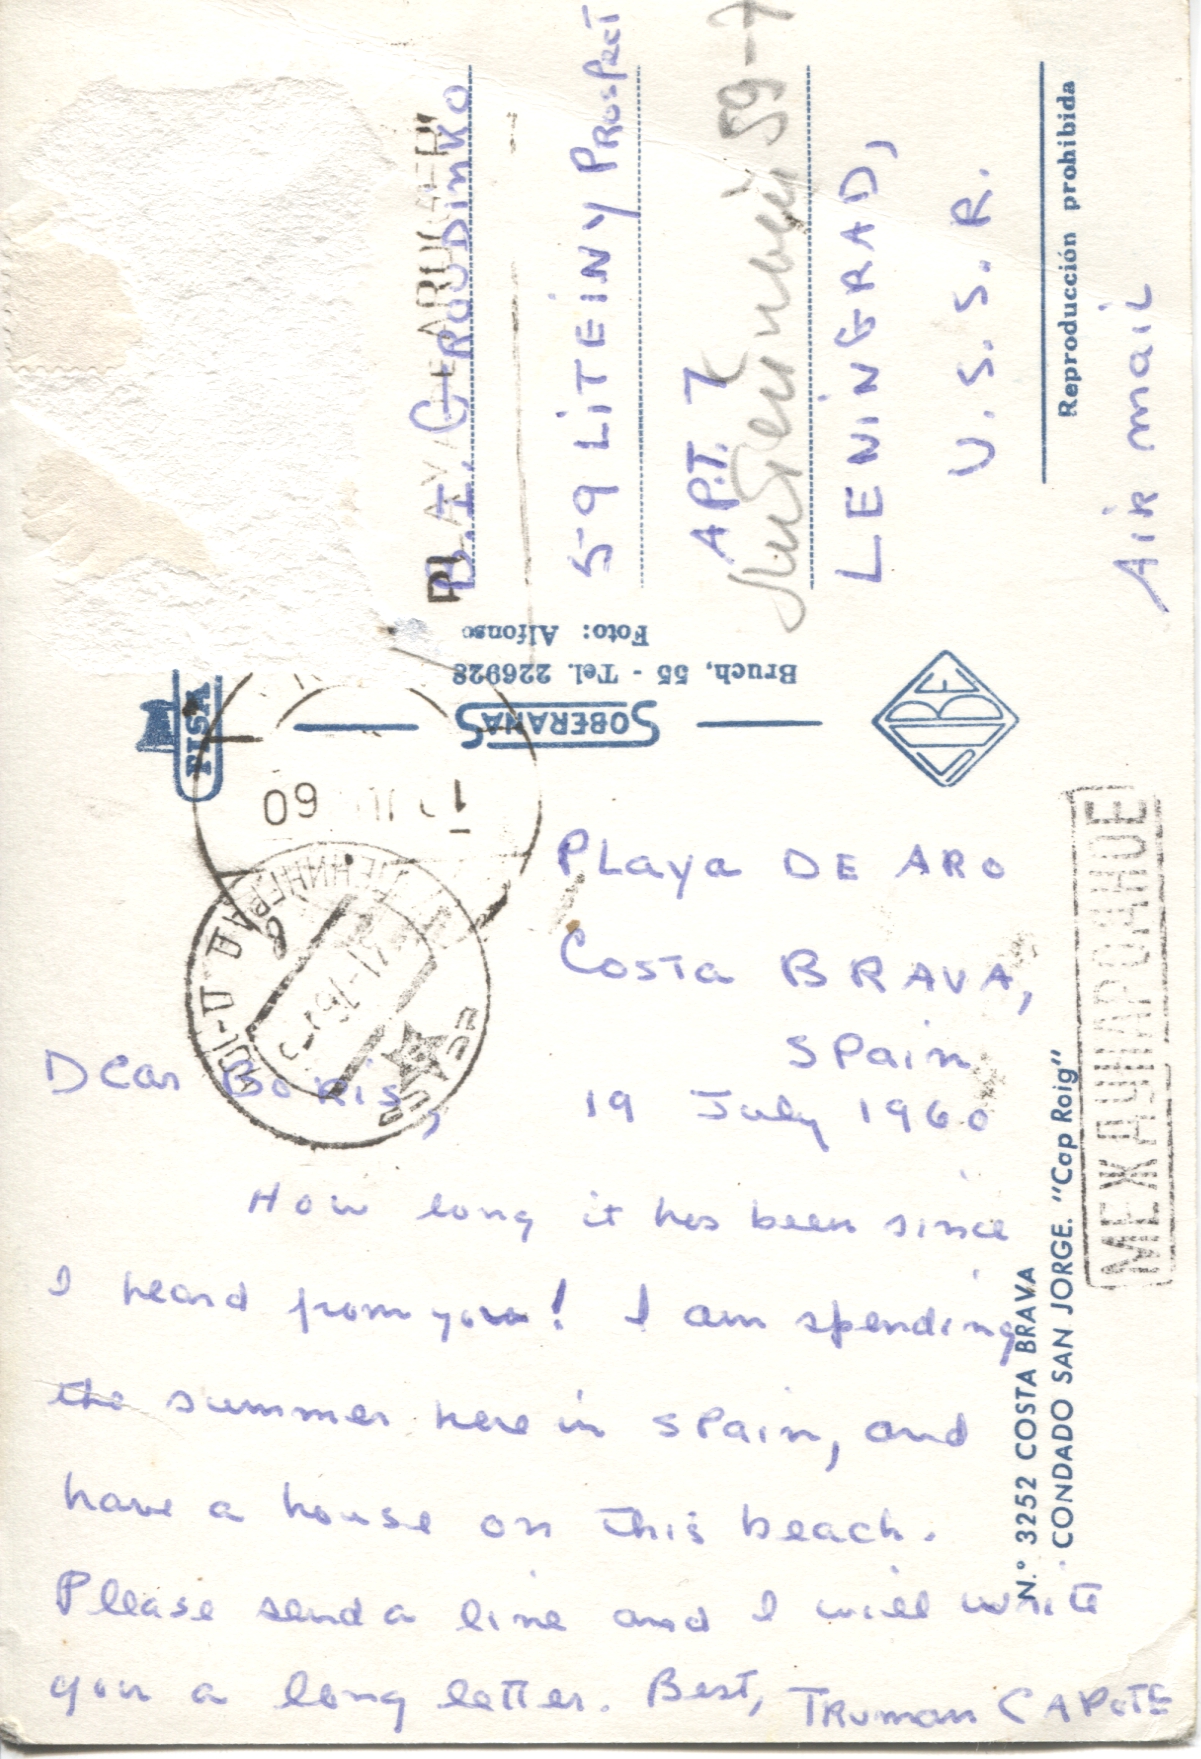 PLaya DE ARO
Costa BRAVA,
Spain
19 July 1960
Dear Boris,
How long it has been since
I heard from you! I am spending
the summer here in Spain, and
have a house on this beach.
Please send a line and I will write
you a long letter. Best, Truman CAPOTE
59 LiTEiNY PROSPECT
APT. 7
LENiNGRAD,
U.S.S.R.
AiR maiL
Reproducción prohibida
FISA
SOBERANAS
Bruch, 55 - Tel. 226928
Foto: Alfonso
N.º 3252 COSTA BRAVA
CONDADO SAN JORGE. "Cap Roig"
МЕЖДУНАРОДНОЕ
60
ЛЕНИНГРАД